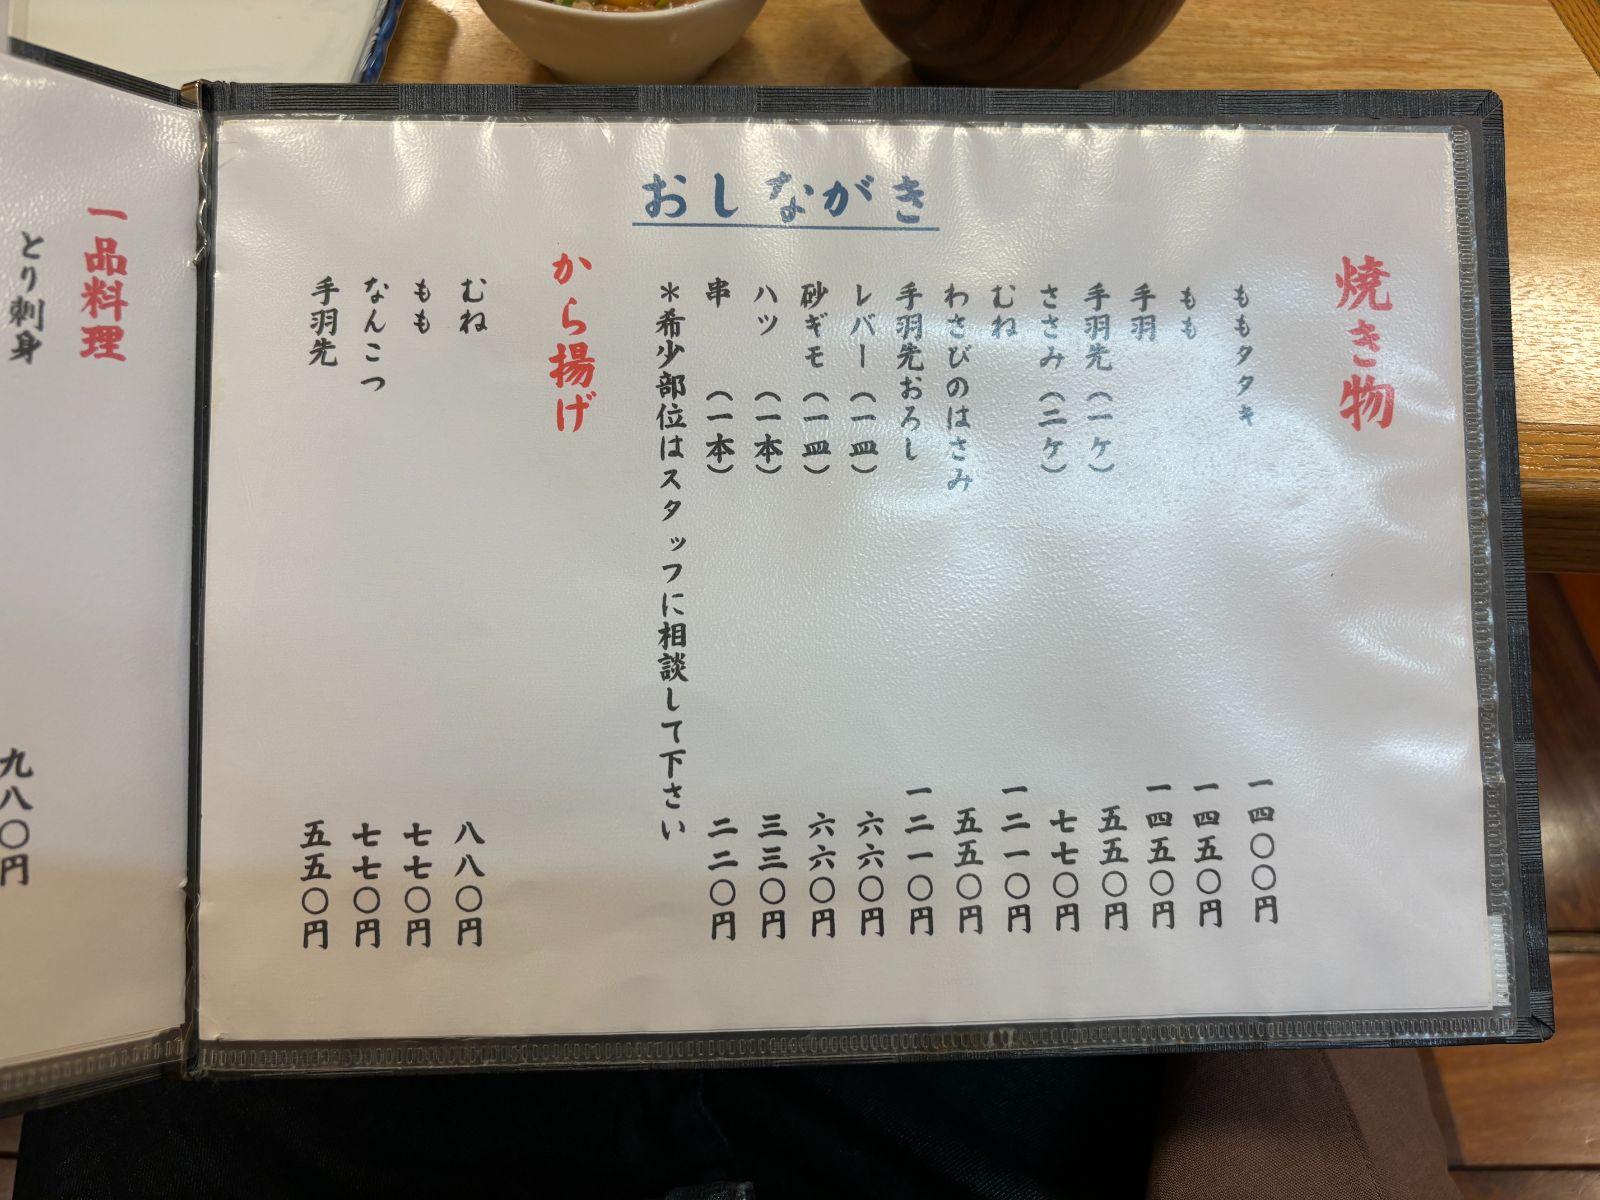 おしながき
焼き物
ももタタキ 一四〇〇円
もも 一四五〇円
手羽 一四五〇円
手羽先(一ケ) 五五〇円
ささみ(二ケ) 七七〇円
むね 一二一〇円
わさびのはさみ 五五〇円
手羽先おろし 一二一〇円
レバー(一皿) 六六〇円
砂ギモ(一皿) 六六〇円
ハツ(一本) 三三〇円
串(一本) 二二〇円
＊希少部位はスタッフに相談して下さい
から揚げ
むね 八八〇円
もも 七七〇円
なんこつ 七七〇円
手羽先 五五〇円
一品料理
とり刺身 九八〇円